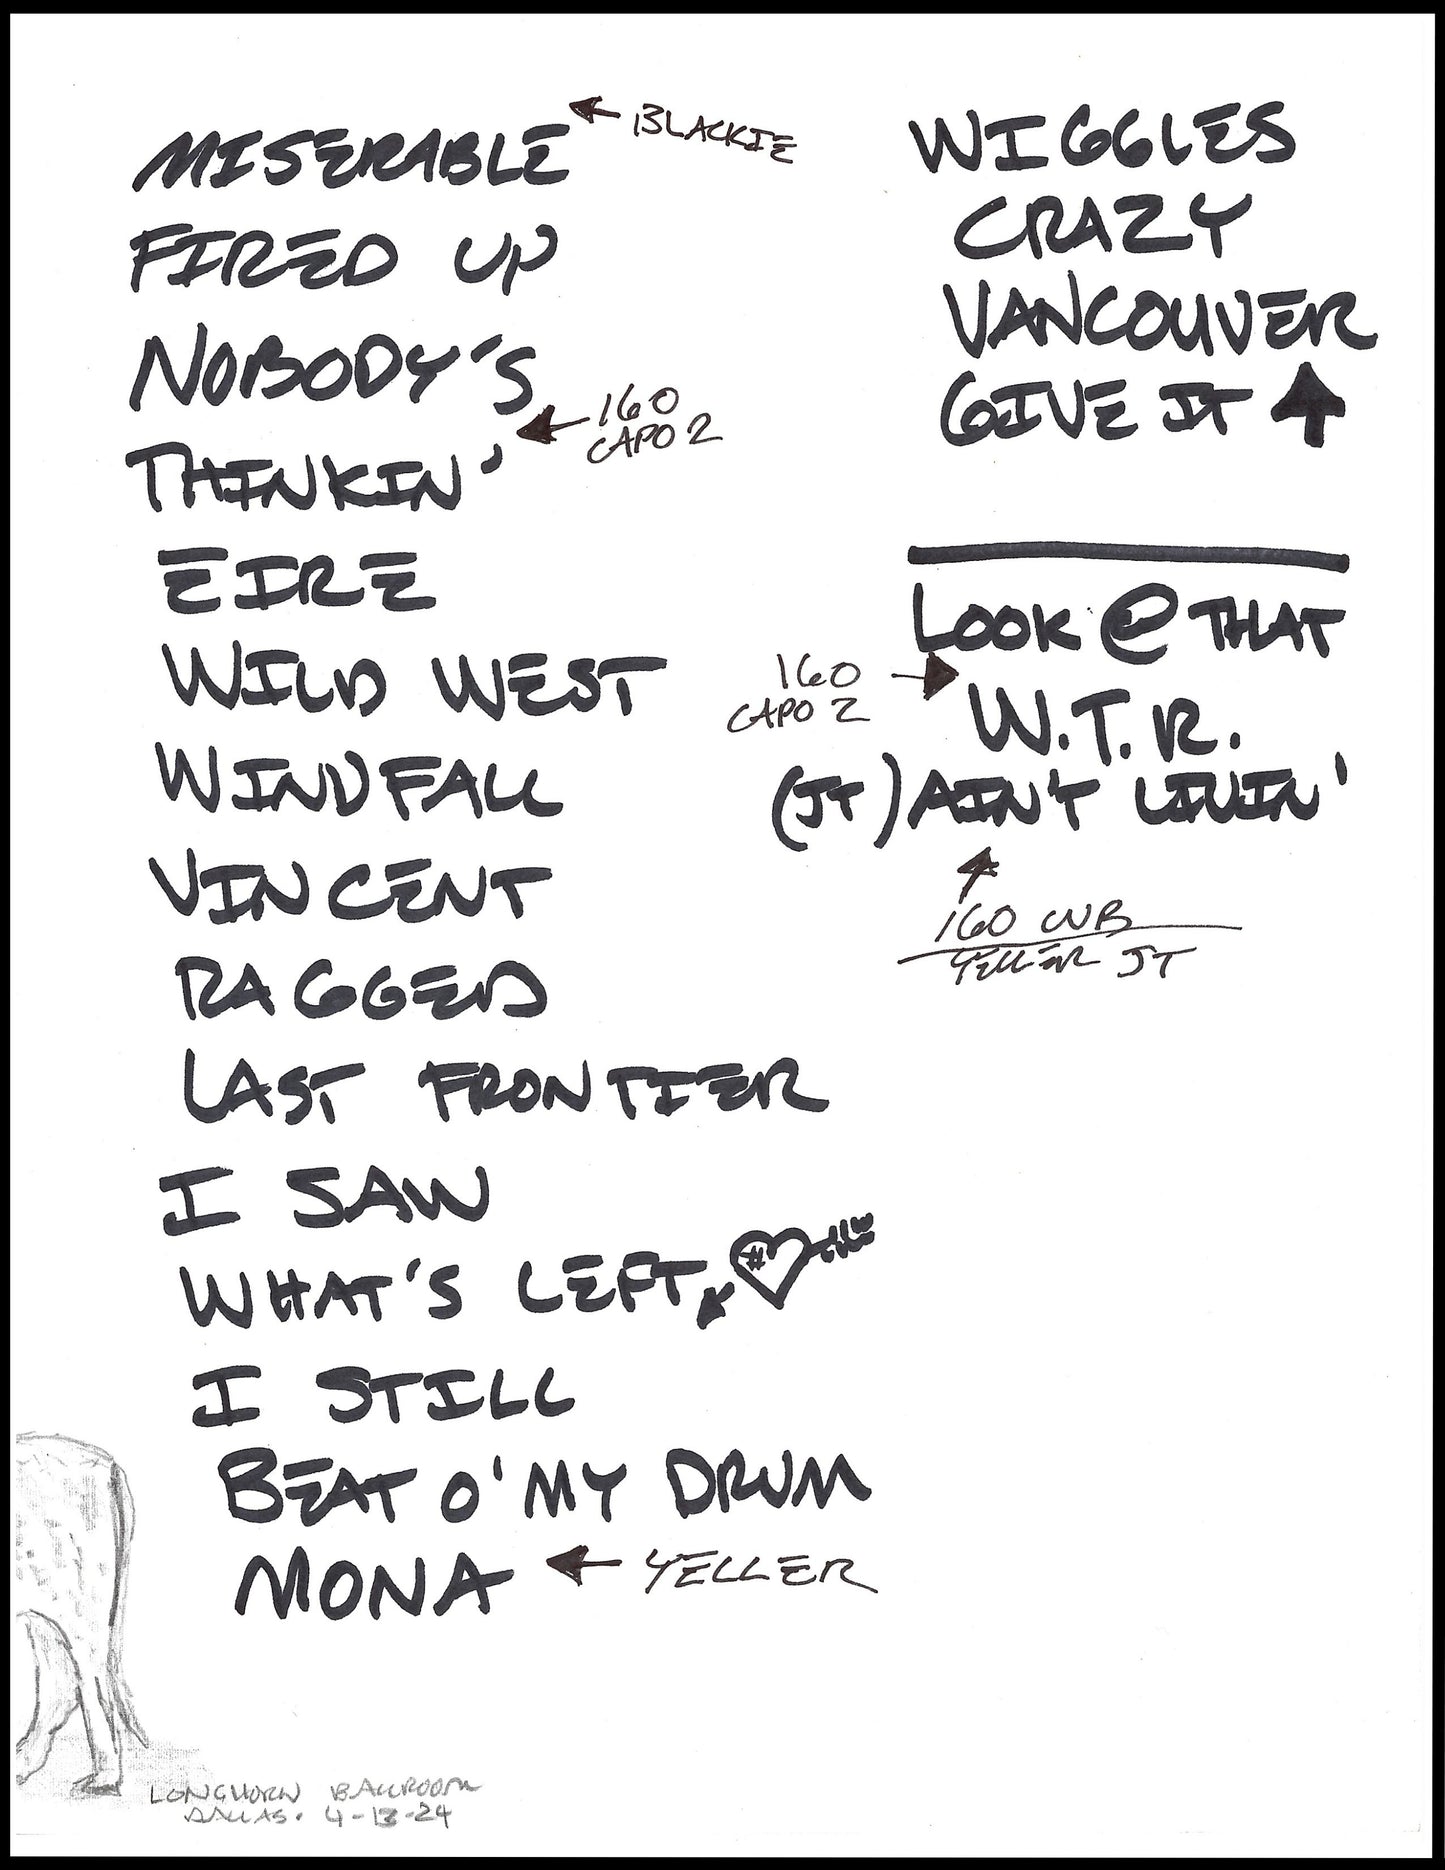 MISERABLE
BLACKIE
FIRED UP
NOBODY'S
160
CAPO 2
THINKIN'
EIRE
WILD WEST
WINDFALL
VINCENT
RAGGED
LAST FRONTIER
I SAW
WHAT'S LEFT
#
I STILL
BEAT O' MY DRUM
MONA
YELLER
LONGHORN BALLROOM
DALLAS. 4-13-24
WIGGLES
CRAZY
VANCOUVER
GIVE IT
LOOK @ THAT
160
CAPO 2
W.T.R.
(JT) AIN'T LIVIN'
160 CWB
YELLER JT